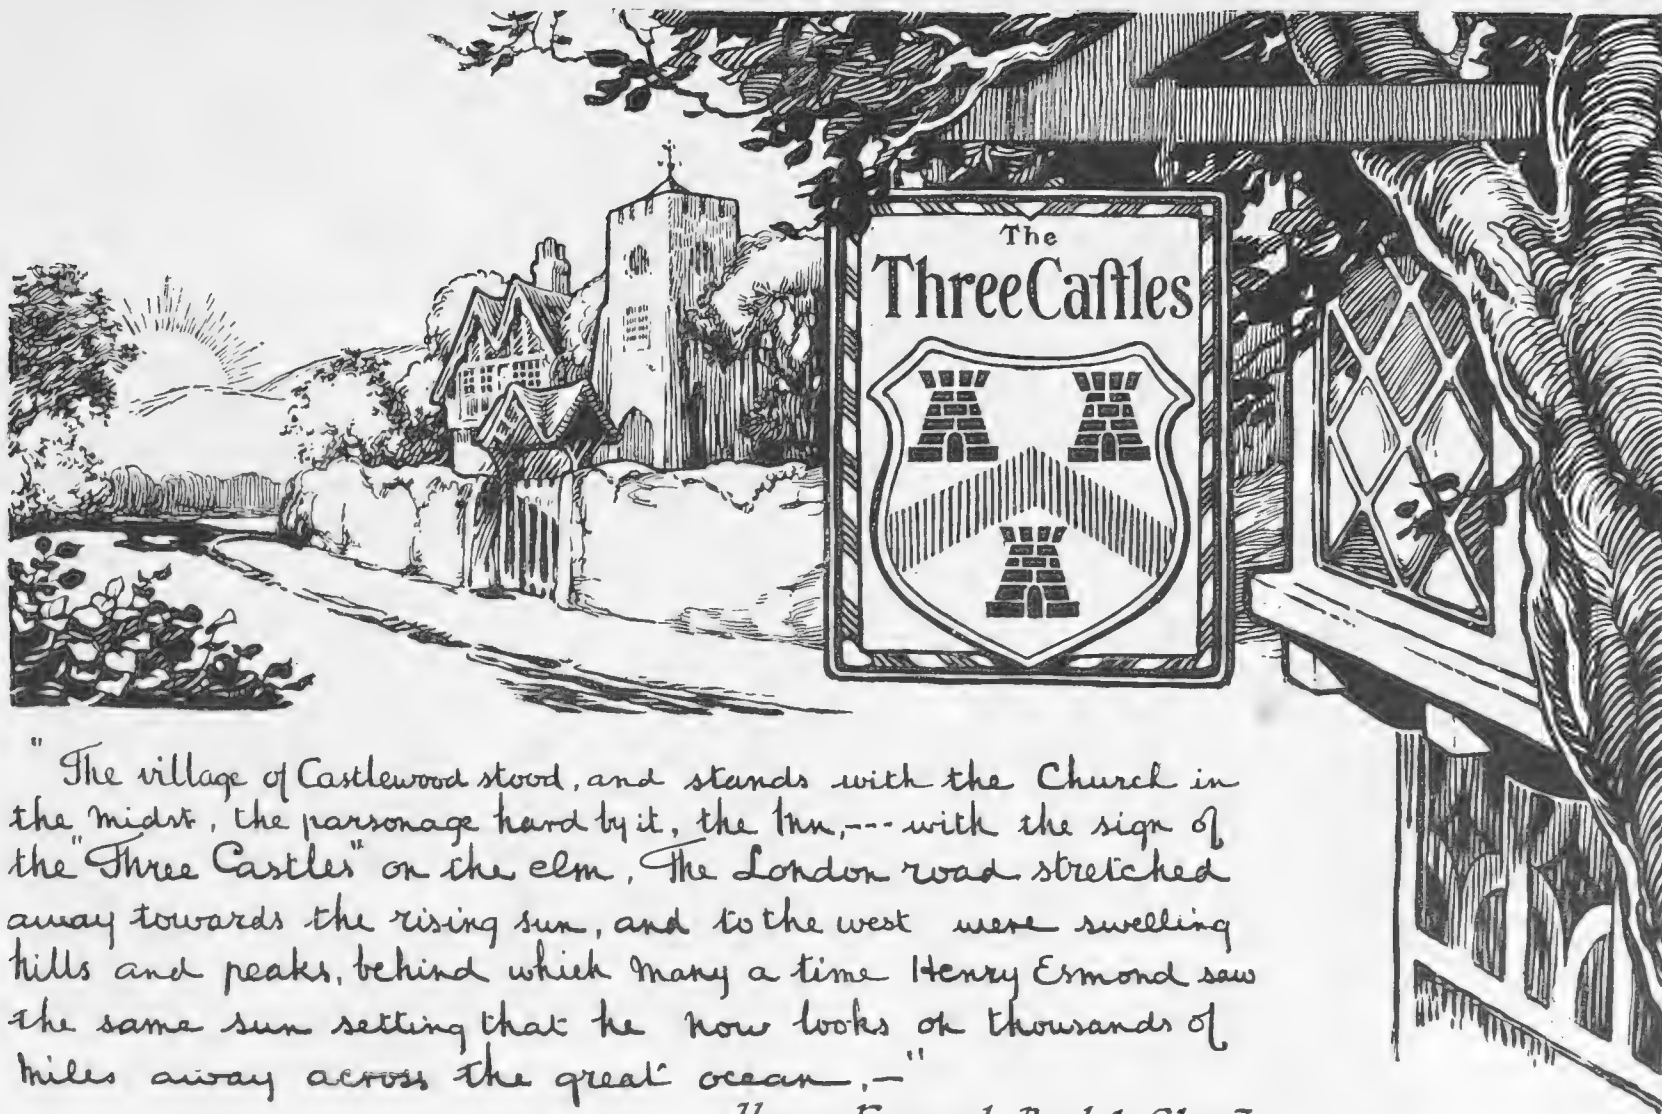 The
Three Caſtles
"The village of Castlewood stood, and stands with the Church in
the midst, the parsonage hard by it, the Inn,--- with the sign of
the "Three Castles" on the elm. The London road stretched
away towards the rising sun, and to the west were swelling
hills and peaks, behind which many a time Henry Esmond saw
the same sun setting that he now looks on thousands of
miles away across the great ocean.—"